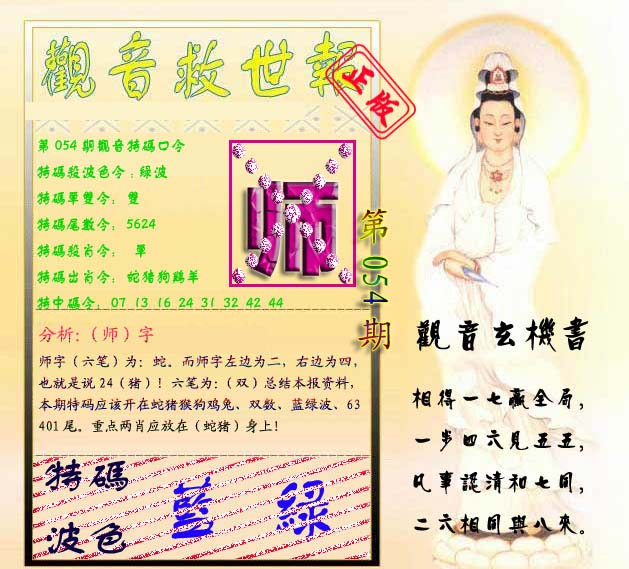 觀音救世報
正版
第054期觀音特碼口令
特碼殺波色令:綠波
特碼單雙令: 雙
特碼尾數令: 5624
特碼殺肖令: 單
特碼出肖令: 蛇猪狗鷄羊
特中碼令: 07 13 16 24 31 32 42 44
师
第054期
分析:(师)字
师字(六笔)为:蛇。而师字左边为二,右边为四,
也就是说24(猪)!六笔为:(双)总结本报资料,
本期特码应该开在蛇猪猴狗鸡兔、双数、蓝绿波、63
401尾。重点两肖应放在(蛇猪)身上!
特碼
波色
藍 綠
觀音玄機書
相得一七贏全局,
一步四六見五五,
凡事認清和七同,
二六相同與八來。